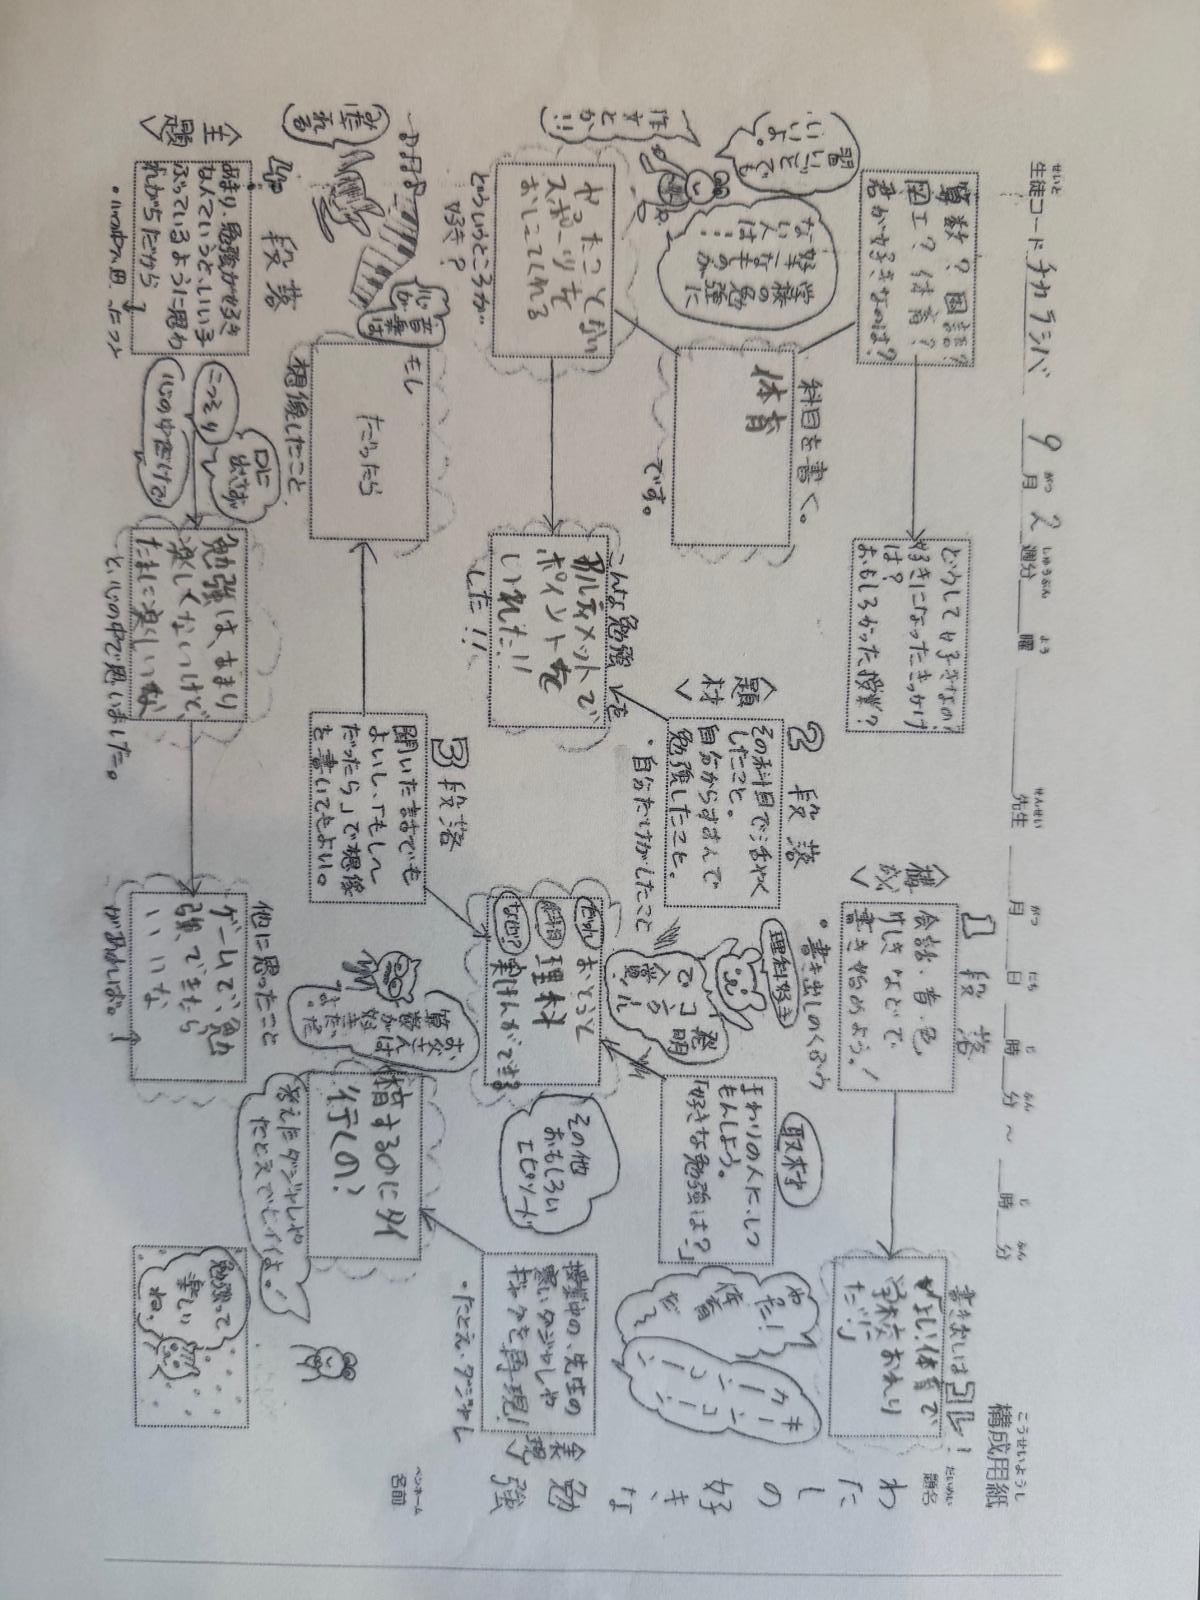 構成用紙
こうせいようし
生徒コード チカラシバ 9月2週分 曜 先生 月 日 時 分 ～ 時 分
せいと がつ しゅうぶん よう せんせい がつ にち じ ふん じ ふん
題名
だいめい
わたしの好きな勉強
ペンネーム
名前
書き出しは
学校おわり
だ!!
1段落
<構成>
会話・音・色
などで
書き始めよう。
・書き出しのくふう
どうして好きなの?
好きになったきっかけ
は?
おもしろかった授業?
算数?国語?
図工?体育?
君が好きなのは?
キーンコーン
カーンコーン
やった!
体育
だ〜
取材
まわりの人にしつ
もんしよう。
「好きな勉強は?」
理科好き
発明
で
入賞
2段落
<題材>
その科目で活やく
したこと。
自分からすすんで
勉強したこと。
・自分だけがしたこと
科目を書く。
体育
です。
学校の勉強に
好きなものが
ない人は…
習いごとでも
いいよ。
作文とか!!
表現
授業中の、先生の
寒いダジャレや
ギャグを再現!
・たとえ・ダジャレ
その他
おもしろい
エピソード
だれ
おとうと
科目
理科
なぜ?
実けんができる
こんな勉強を
アルティメットで
ポイントを
いれた!!
した!!
やったことない
スポーツを
おしえてくれる
どういうところが…
好き?
3段落
聞いたままでも
よいし、「もし〜
だったら」で想像
を書いてもよい。
お父さんは
算数が
好き
だった
よ。
行くの?
考えたダジャレや
たとえでもイイよ。
もし
だったら
想像したこと
音楽は
心が
みだれる
段落
<主題>
あまり、勉強が好き
なんていうと、いい子
ぶっているように思わ
れがちだから
・心の中で思ったこと
こっそり
口に出さず
心の中だけで
勉強は、あまり
楽しくないけど、
たまに楽しいな
と、心の中で思いました。
他に思ったこと
ゲームで、勉
強できたら
いいな
があれば。
勉強って
楽しい
ね。